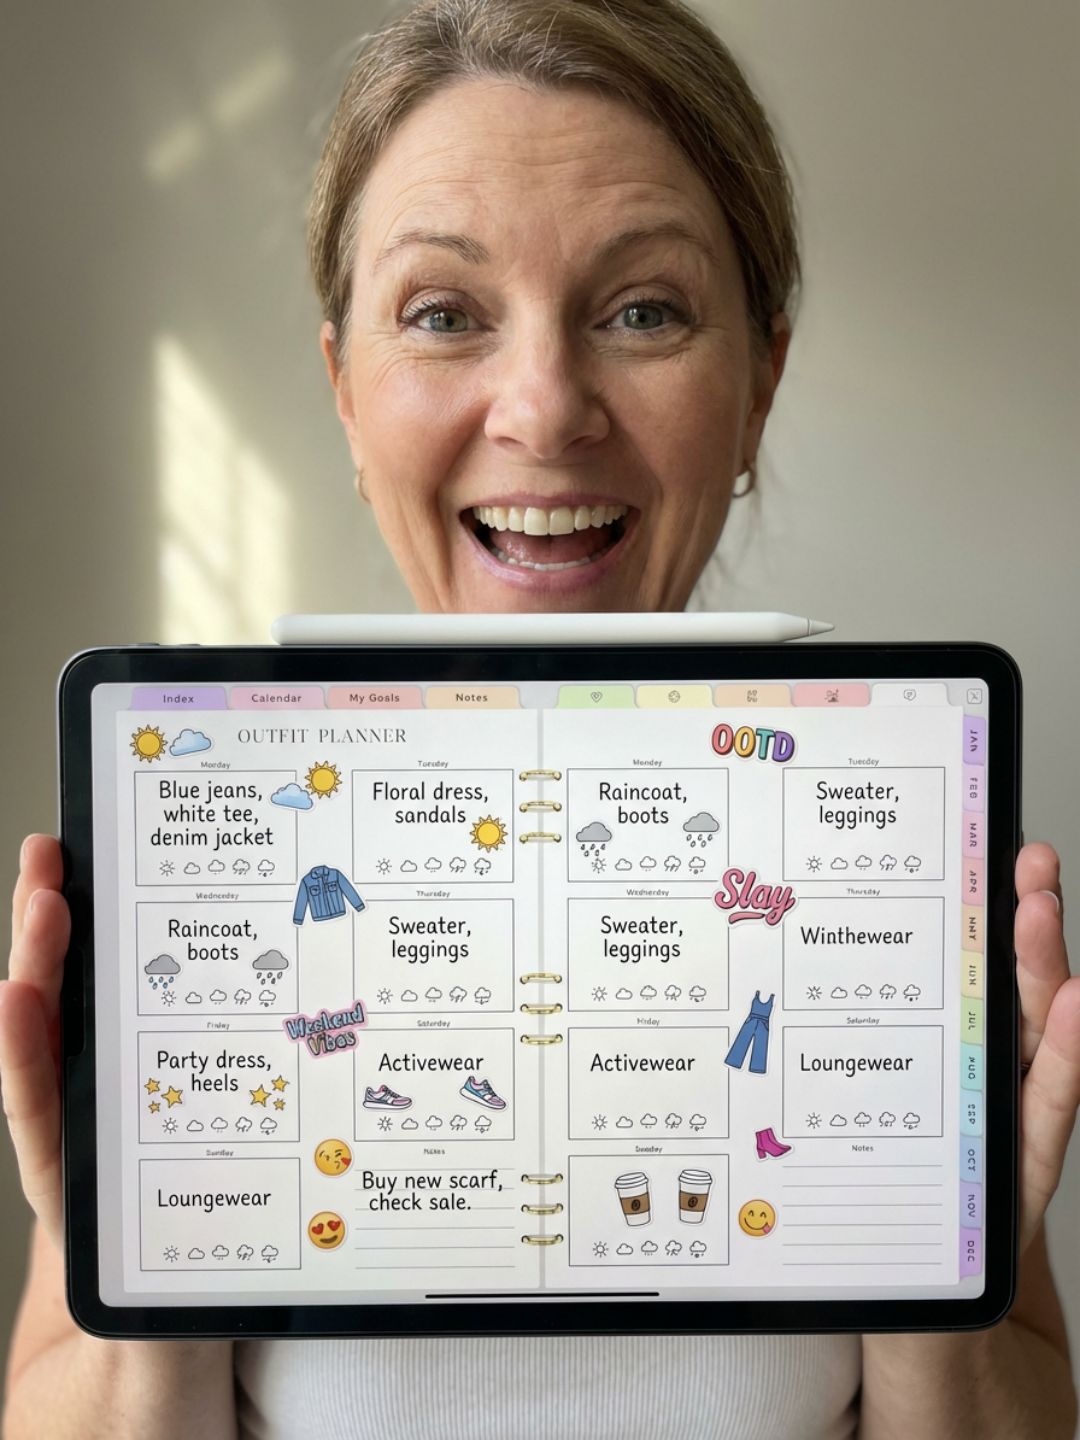 Index
Calendar
My Goals
Notes
OUTFIT PLANNER
Monday
Blue jeans,
white tee,
denim jacket
Tuesday
Floral dress,
sandals
Wednesday
Raincoat,
boots
Thursday
Sweater,
leggings
Friday
Party dress,
heels
Weekend
Vibes
Saturday
Activewear
Sunday
Loungewear
Notes
Buy new scarf,
check sale.
OOTD
Monday
Raincoat,
boots
Tuesday
Sweater,
leggings
Slay
Wednesday
Sweater,
leggings
Thursday
Winthewear
Friday
Activewear
Saturday
Loungewear
Sunday
Notes
JAN
FEB
MAR
APR
JUN
JUL
AUG
SEP
OCT
NOV
DEC